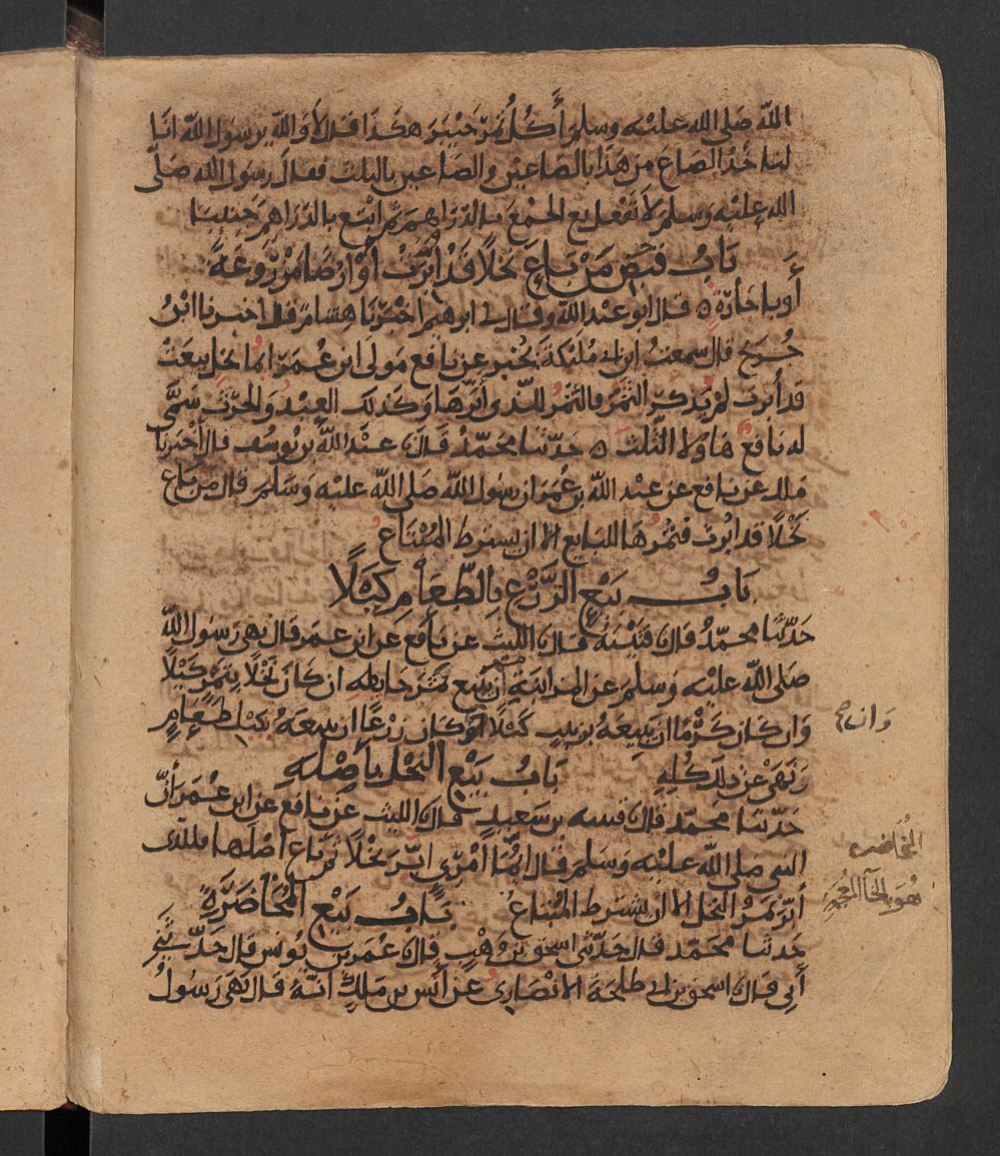 الله صلى الله عليه وسلم أكل تمر خيبر هكذا قال لا والله يرسول الله انا
لنا خذ الصاع من هذا بالصاعين والصاعين بالثلث فقال رسول الله صلى
الله عليه وسلم لا تفعل بع الجمع بالدراهم ثم ابتع بالدراهم جنيبا
باب قبض من باع نخلا قد أبرت أو أرضا مزروعة
أو باجارة ه قال ابو عبد الله وقال لي ابرهيم اخبرنا هشام قال اخبرنا ابن
جريج قال سمعت ابن ابي مليكة يخبر عن نافع مولى ابن عمر ايما نخل بيعت
قد أبرت لم يذكر الثمر فالثمر للذي أبرها وكذلك العبد والحرث سمى
له نافع هاولا الثلث ه حدثنا محمد قال ثا عبد الله بن يوسف قال أخبرنا
ملك عن نافع عن عبد الله بن عمر ان رسول الله صلى الله عليه وسلم قال من باع
نخلا قد ابرت فثمرها للبايع الا ان يشترط المبتاع
باب بيع الزرع بالطعام كيلا
حدثنا محمد قال ثا قتيبة قال ثا الليث عن نافع عن ابن عمر قال نهى رسول الله
صلى الله عليه وسلم عن المزابنة أن يبيع ثمر حايطه ان كان نخلا بتمر كيلا
وان كان كرما ان يبيعه بزبيب كيلا أو كان زرعا ان يبيعه بكيل طعام
ونهى عن ذلك كله باب بيع النخل بأصله
حدثنا محمد قال ثا قتيبه بن سعيد قال ثا الليث عن نافع عن ابن عمر أن
النبي صلى الله عليه وسلم قال ايما أمرئ ابر نخلا ثم باع اصلها فللذي
أبر ثمر النخل الا ان يشترط المبتاع باب بيع المخاضرة
حدثنا محمد قال حدثني اسحق بن وهب قال ثا عمر بن يونس قال حدثني
أبي قال ثا اسحق بن ابي طلحة الانصاري عن أنس بن ملك انه قال نهى رسول
وان
المخاضرة
هو بالخا المعجمة